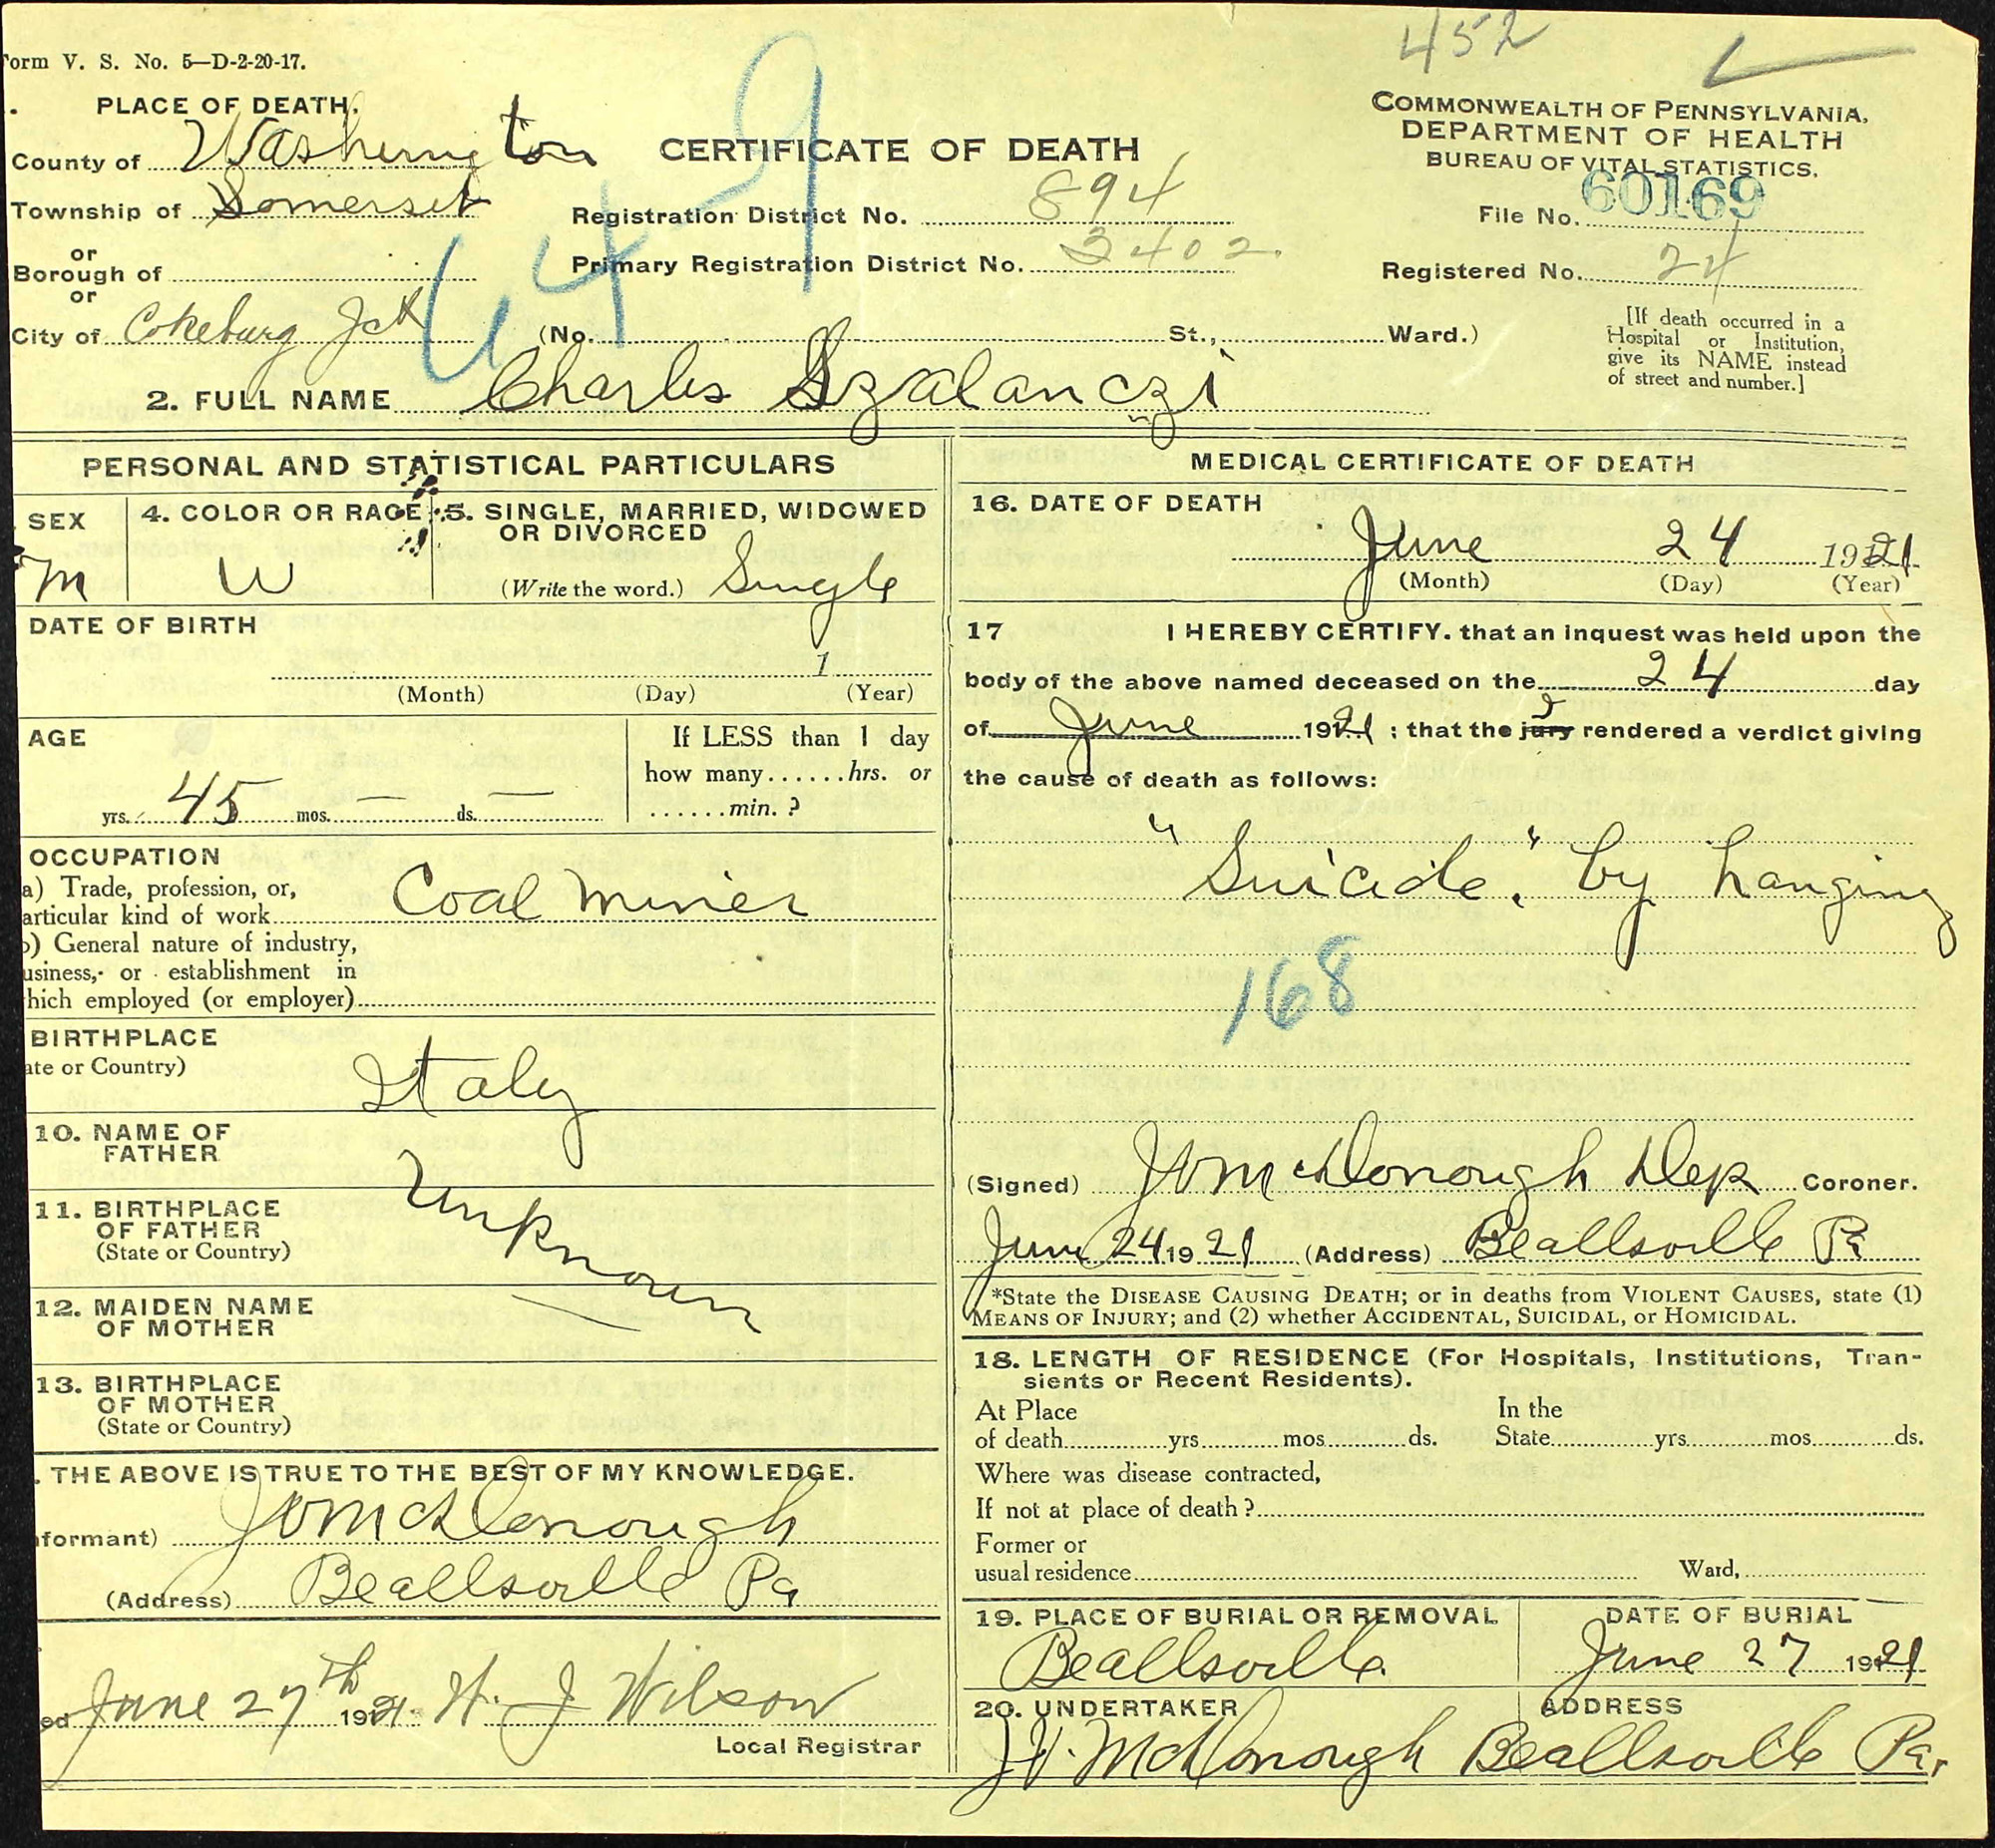 452
Form V. S. No. 5—D-2-20-17.
PLACE OF DEATH.
County of Washington
Township of Somerset
or
Borough of
or
City of Cokeburg Jct
CERTIFICATE OF DEATH
Registration District No. 894
Primary Registration District No. 3402.
(No. St., Ward.)
COMMONWEALTH OF PENNSYLVANIA,
DEPARTMENT OF HEALTH
BUREAU OF VITAL STATISTICS.
File No. 60169
Registered No. 24
[If death occurred in a
Hospital or Institution,
give its NAME instead
of street and number.]
2. FULL NAME Charles Szalanczi
PERSONAL AND STATISTICAL PARTICULARS
SEX
M
4. COLOR OR RACE
W
5. SINGLE, MARRIED, WIDOWED
OR DIVORCED
(Write the word.) Single
DATE OF BIRTH
1
(Month) (Day) (Year)
AGE
yrs. 45 mos. — ds. —
If LESS than 1 day
how many......hrs. or
......min. ?
OCCUPATION
a) Trade, profession, or,
articular kind of work Coal Miner
b) General nature of industry,
usiness, or establishment in
hich employed (or employer)
BIRTHPLACE
ate or Country) Italy
10. NAME OF
FATHER
11. BIRTHPLACE
OF FATHER
(State or Country)
Unknown
12. MAIDEN NAME
OF MOTHER
13. BIRTHPLACE
OF MOTHER
(State or Country)
. THE ABOVE IS TRUE TO THE BEST OF MY KNOWLEDGE.
nformant) J V McDonough
(Address) Beallsville Pa
ed June 27th 1921. H. J Wilson
Local Registrar
MEDICAL CERTIFICATE OF DEATH
16. DATE OF DEATH
June 24 1921
(Month) (Day) (Year)
17 I HEREBY CERTIFY. that an inquest was held upon the
body of the above named deceased on the 24 day
of June 1921 ; that the jury rendered a verdict giving
the cause of death as follows:
"Suicide." by hanging
168
(Signed) J V McDonough Dep Coroner.
June 24 1921 (Address) Beallsville Pa
*State the DISEASE CAUSING DEATH; or in deaths from VIOLENT CAUSES, state (1)
MEANS OF INJURY; and (2) whether ACCIDENTAL, SUICIDAL, or HOMICIDAL.
18. LENGTH OF RESIDENCE (For Hospitals, Institutions, Tran-
sients or Recent Residents).
At Place In the
of death yrs mos ds. State yrs mos ds.
Where was disease contracted,
If not at place of death ?
Former or
usual residence Ward,
19. PLACE OF BURIAL OR REMOVAL
Beallsville
DATE OF BURIAL
June 27 1921
20. UNDERTAKER ADDRESS
J V. McDonough Beallsville Pa.